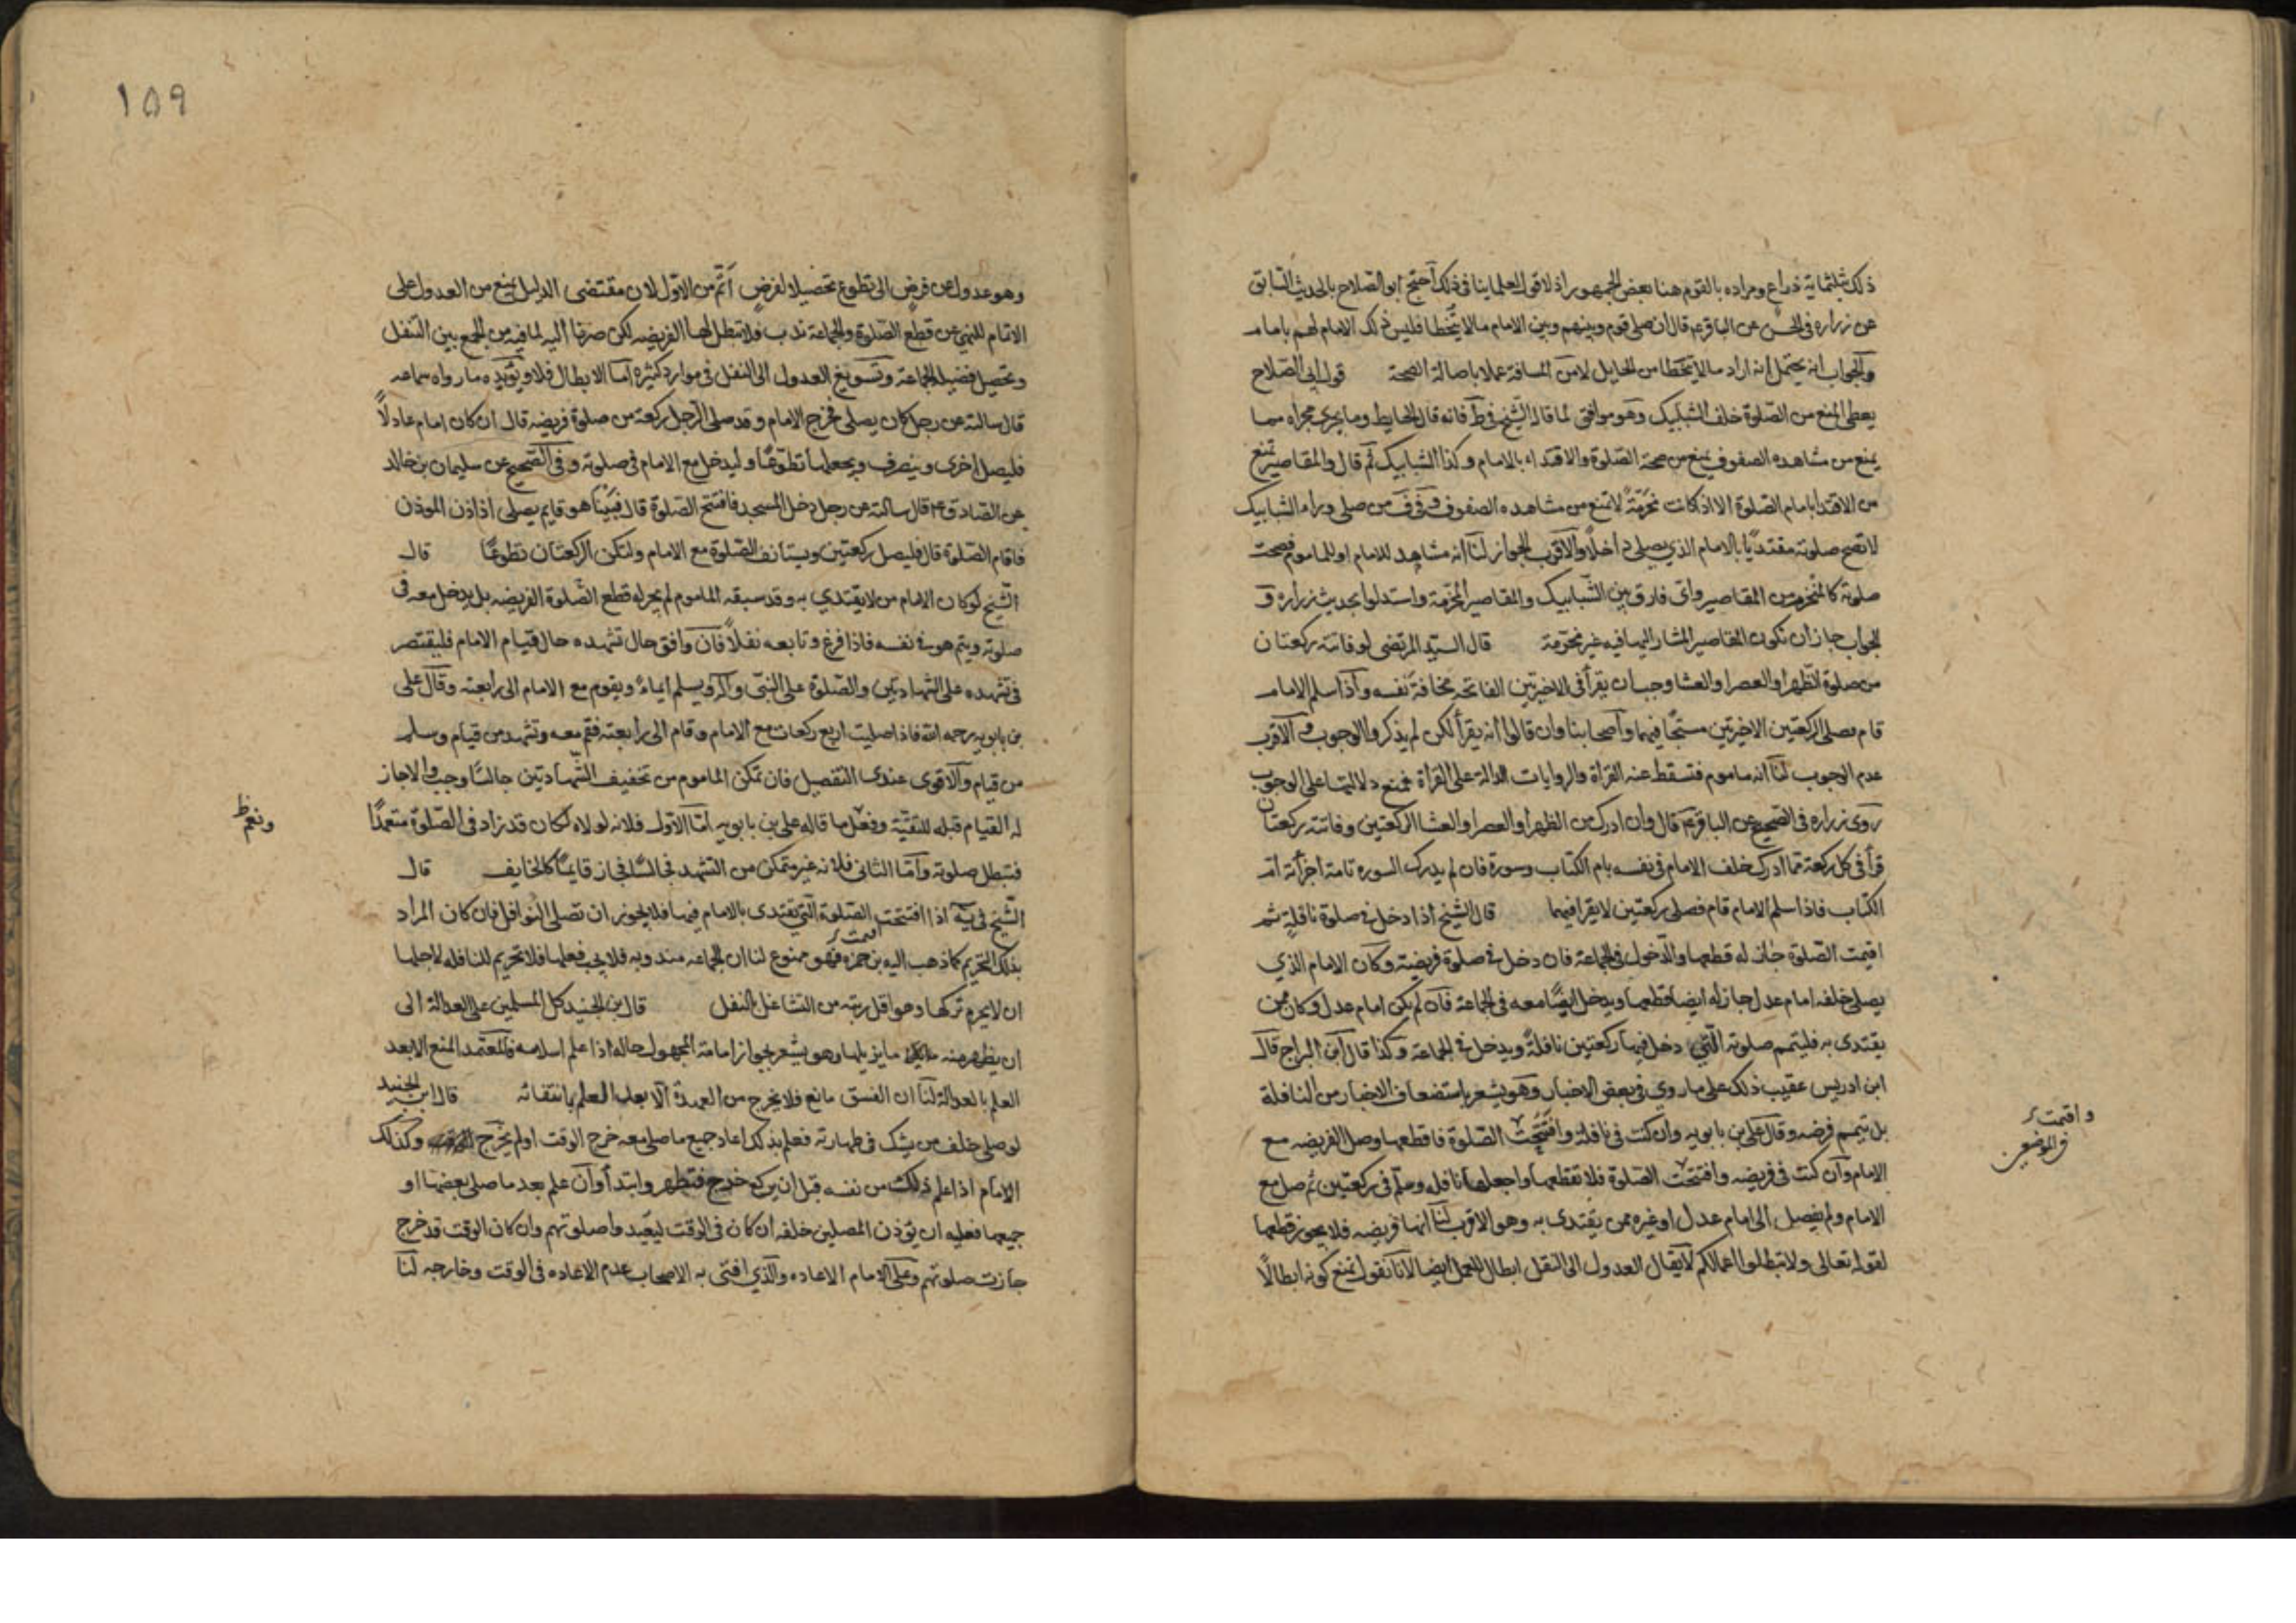 ذلك بثلثماية ذراع ومراده بالقوم هنا بعض الجمهور اذ لا قول لعلماينا في ذلك احتج ابو الصلاح بالحديث السابق
عن زراره في الحسن عن الباقر ع قال ان صلى قوم وبينهم وبين الامام مالا يتخطا فليس ذلك الامام لهم بامام
والجواب انه يحتمل انه اراد مالا يتخطا من الحايل لا من المسافة عملا باصالة الصحة قول ابي الصلاح
يعطى المنع من الصلوة خلف الشبابيك وهو موافق لما قاله الشيخ في ط فانه قال الحايط وما يجرى مجراه مما
يمنع من مشاهده الصفوف يمنع من صحة الصلوة والاقتداء بالامام وكذا الشبابيك ثم قال والمقاصير تمنع
من الاقتدا بامام الصلوة الا اذ كانت مخرمة لا تمنع من مشاهده الصفوف وفي ف من صلى وراء الشبابيك
لا تصح صلوته مقتديا بالامام الذي يصلى داخلا والاقرب الجواز لنا انه مشاهد للامام او للماموم فصحت
صلوته كالمخرمة من المقاصير واى فارق بين الشبابيك والمقاصير المخرمة واستدلوا بحديث زراره و
الجواب جاز ان تكون المقاصير المشار اليها فيه غير مخرمة قال السيد المرتضى لو فاتته ركعتان
من صلوة الظهر او العصر او العشا وجب ان يقرأ في الاخيرتين الفاتحه مخافة نفسه واذا سلم الامام
قام يصلى الركعتين الاخيرتين مسبحا فيهما واصحابنا وان قالوا انه يقرأ لكن لم يذكروا الوجوب والاقرب
عدم الوجوب لنا انه ماموم فتسقط عنه القراة والروايات الدالة على القراة نمنع دلالتها على الوجوب
روى زراره في الصحيح عن الباقر ع قال وان ادرك من الظهر او العصر او العشا الركعتين وفاتته ركعتان
قرأ في كل ركعة مما ادرك خلف الامام في نفسه بام الكتاب وسورة فان لم يدرك السوره تامة اجزأته ام
الكتاب فاذا سلم الامام قام فصلى ركعتين لا يقرا فيهما قال الشيخ اذا دخل في صلوة نافلة ثم
اقيمت الصلوة جاز له قطعها والدخول في الجماعة فان دخل في صلوة فريضة وكان الامام الذي
يصلى خلفه امام عدل جاز له ايضا قطعها ويدخل ايضا معه في الجماعة فان لم يكن امام عدل وكان ممن
يقتدى به فليتمم صلوته التي دخل فيها ركعتين نافلة ويدخل في الجماعة وكذا قال ابن البراج قال
ابن ادريس عقيب ذلك على ما روي في بعض الاخبار وهو يشعر باستضعاف الاخبار من النافلة
بل يتمم فرضه وقال على بن بابويه وان كنت في نافلة وافتتحت الصلوة فاقطعها وصل الفريضه مع
الامام وان كنت في فريضه وافتتحت الصلوة فلا تقطعها واجعلها نافله وسلم في ركعتين ثم صل مع
الامام ولم يفصل الى امام عدل او غيره ممن يقتدى به وهو الاقرب لنا انها فريضه فلا يجوز قطعها
لقوله تعالى ولا تبطلوا اعمالكم لا يقال العدول الى النفل ابطال للعمل ايضا لانا نقول نمنع كونه ابطالا
واقيمت
في الموضعين
١٥٩
وهو عدول من فرض الى تطوع تحصيلا لفرض اتم من الاول لان مقتضى الدليل يمنع من العدول على
الاتمام للنهي عن قطع الصلوة والجماعة ندب فلا تبطل لها الفريضه لكن صرنا اليه لما فيه من الجمع بين التنفل
وتحصيل فضيله الجماعة وتسويغ العدول الى النفل في موارد كثيره اما الابطال فلا ويؤيده ما رواه سماعه
قال سالته عن رجل كان يصلى فخرج الامام وقد صلى الرجل ركعة من صلوة فريضه قال ان كان امام عادلا
فليصل اخرى وينصرف ويجعلها تطوعا وليدخل مع الامام في صلوته وفي الصحيح عن سليمان بن خالد
عن الصادق ع قال سالته عن رجل دخل المسجد فافتتح الصلوة قال فبينا هو قايم يصلى اذ اذن الموذن
فاقام الصلوة قال فليصل ركعتين ويستانف الصلوة مع الامام ولتكن الركعتان تطوعا قال
الشيخ لو كان الامام من لا يقتدي به وقد سبقه الماموم لم يجز له قطع الصلوة الفريضه بل يدخل معه في
صلوته ويتم هو في نفسه فاذا فرغ وتابعه نفلا فان وافق حال تشهده حال قيام الامام فليقتصر
في تشهده على الشهادتين والصلوة على النبي واله ويسلم ايماء ويقوم مع الامام الى رابعته وقال على
بن بابويه رحمه الله فاذا صليت اربع ركعات مع الامام وقام الى رابعته فقم معه وتشهد من قيام وسلم
من قيام والاقوى عندى التفصيل فان تمكن الماموم من تخفيف الشهادتين جالسا وجب والا جاز
له القيام قبله للتقية وفعل ما قاله على بن بابويه اما الاول فلانه لولاه لكان قد زاد في الصلوة متعمدا
فتبطل صلوته واما الثاني فلانه غير متمكن من التشهد جالسا فجاز قايما كالخايف قال
الشيخ في يه اذا افتتحت الصلوة التي تقتدى بالامام فيها فلا يجوز ان تصلى النوافل فان كان المراد
بذلك التحريم كما ذهب اليه بن حمزه فهو ممنوع لنا ان الجماعه مندوبه فلا يجب فعلها فلا تحريم للنافله لاجلها
ان لا يحرم تركها وهو اقل رتبه من التشاغل بالنفل قال بن الجنيد كل المسلمين على العدالة الى
ان يظهر منه ما يزيلها وهو يشعر بجواز امامة المجهول حاله اذا علم اسلامه والمعتمد المنع الا بعد
العلم بالعدالة لنا ان الفسق مانع فلا يخرج من العهدة الا بعد العلم بانتفائه قال ابن الجنيد
لو صلى خلف من يشك في طهارته فعلم بذلك اعاد جميع ما صلى معه خرج الوقت او لم يخرج وكذلك
الامام اذا علم ذلك من نفسه قبل ان يركع خرج فتطهر وابتدأ وان علم بعد ما صلى بعضها او
جميعها فعليه ان يؤذن المصلين خلفه ان كان في الوقت ليعيدوا صلوتهم وان كان الوقت قد خرج
جازت صلوتهم وعلى الامام الاعاده والذي افتى به الاصحاب عدم الاعاده في الوقت وخارجه لنا